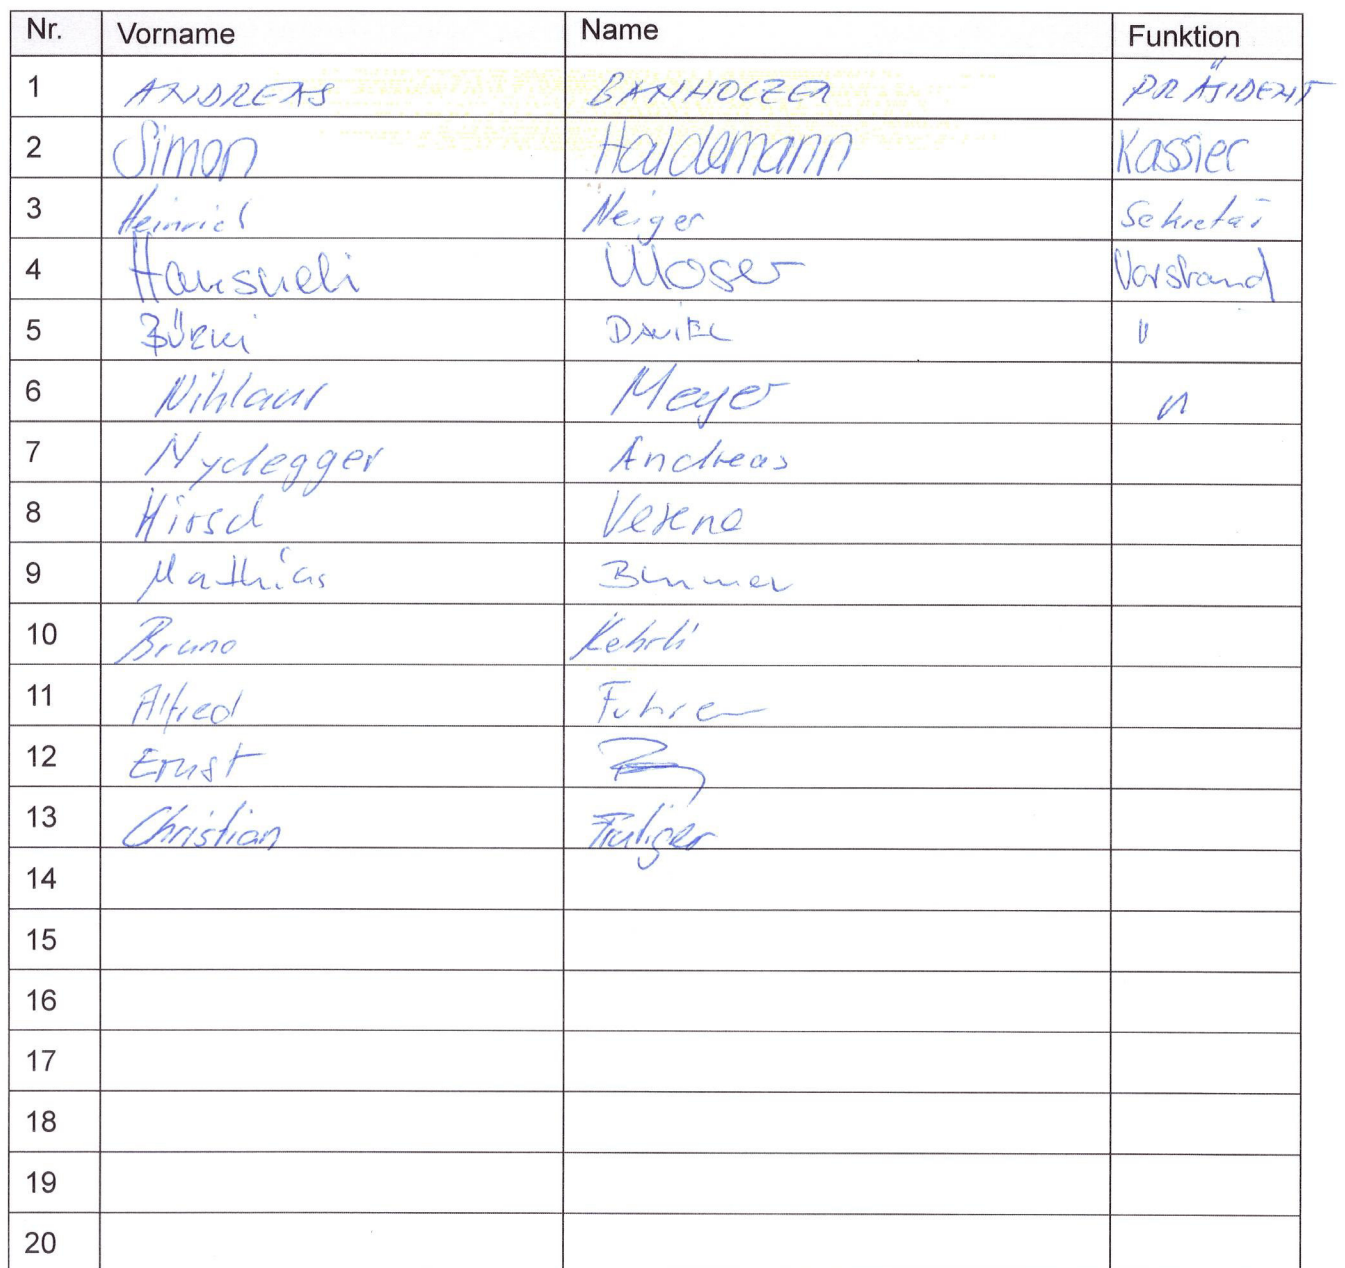 Nr. Vorname Name Funktion
1 ANDREAS BANHOLZER PRÄSIDENT
2 Simon Haldemann Kassier
3 Heinrich Neiger Sekretär
4 Hansueli Moser Vorstand
5 BÜRKI DANIEL "
6 Niklaus Meyer "
7 Nydegger Andreas
8 Hirsch Verena
9 Mathias
10 Bruno Kehrli
11 Alfred Fuhrer
12 Ernst
13 Christian
14
15
16
17
18
19
20